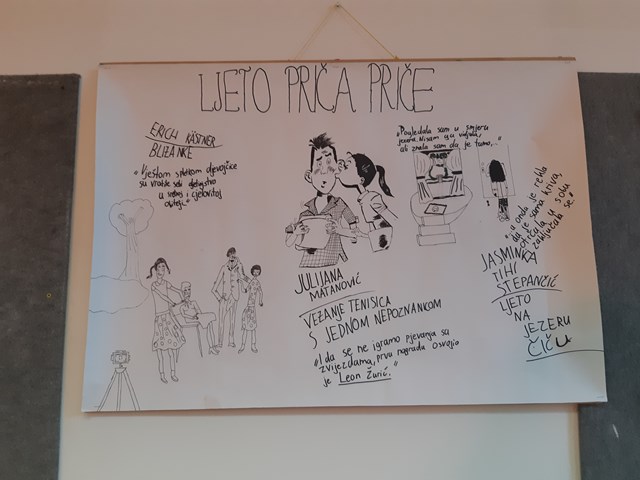 LJETO PRIČA PRIČE
ERICH KÄSTNER
BLIZANKE
"Vještom spletkom djevojčice
su vratile sebi djetinjstvo
u sretnoj i cjelovitoj
obitelji."
"Pogledala sam u smjeru
jezera. Nisam ga vidjela,
ali znala sam da je tamo,..."
JULIJANA
MATANOVIĆ
VEZANJE TENISICA
S JEDNOM NEPOZNANKOM
"I da se ne igramo pjevanja sa
zvijezdama, prvu nagradu osvojio
je Leon Žurić."
"...a onda je rekla
da je sama kriva,
otrčala u sobu
zaključala se"
JASMINKA
TIHI
STEPANIĆ
LJETO
NA
JEZERU
ČIČU